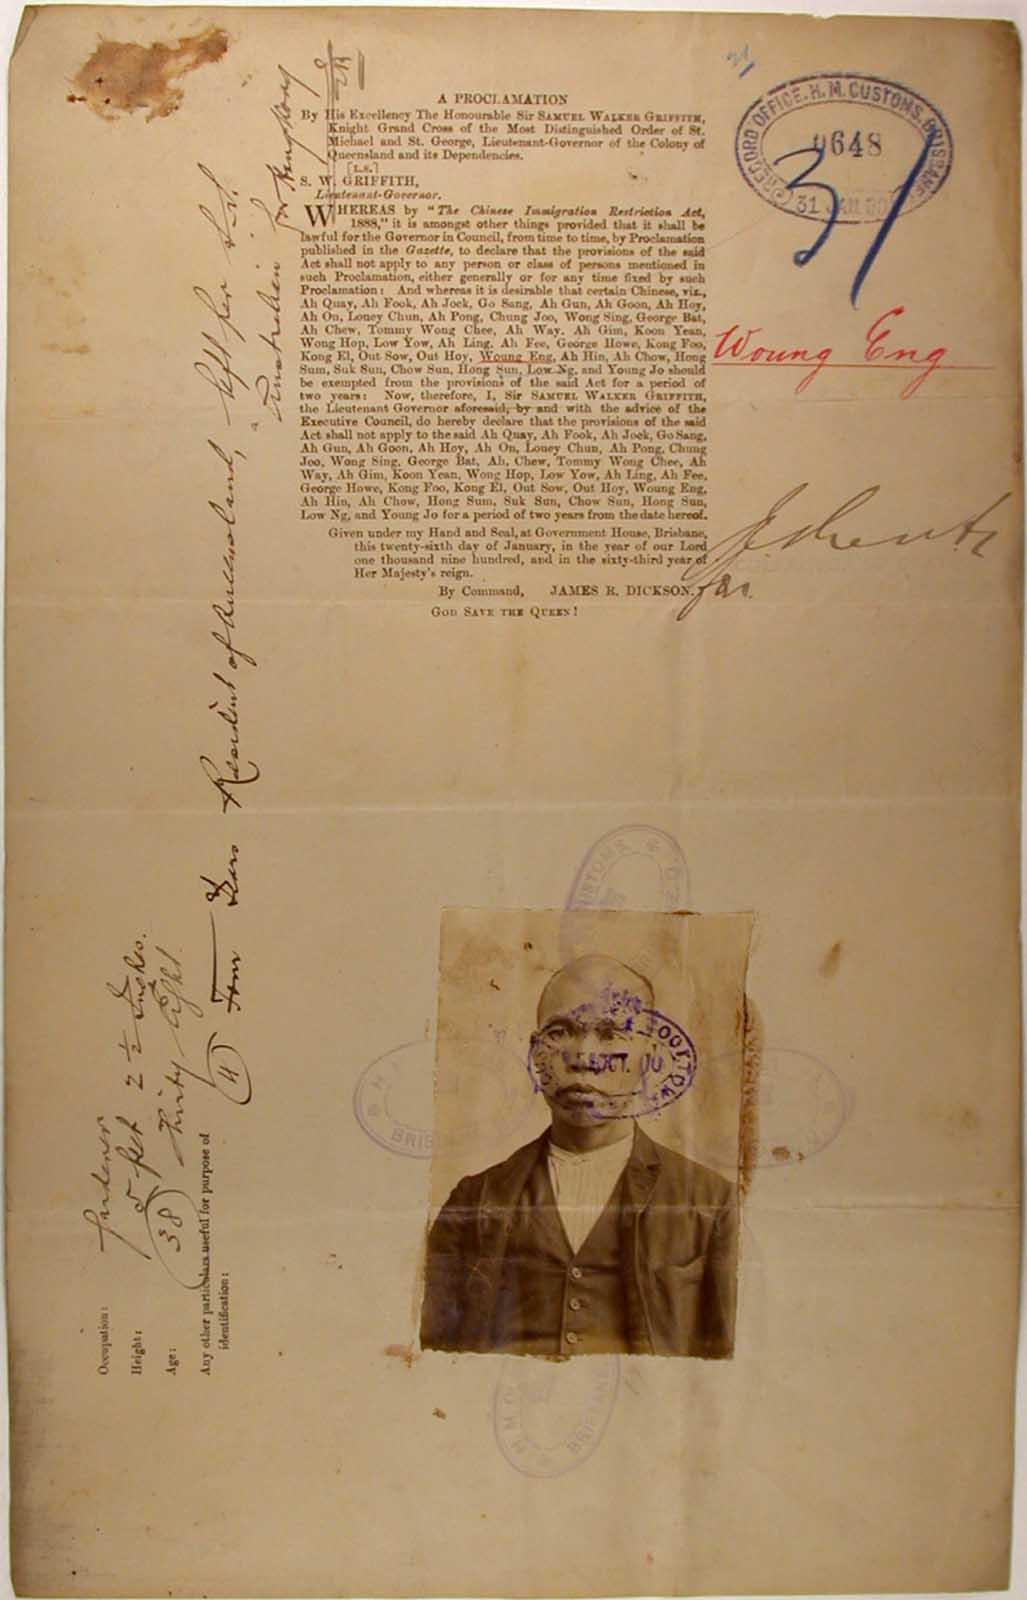 A PROCLAMATION
By His Excellency The Honourable Sir SAMUEL WALKER GRIFFITH,
Knight Grand Cross of the Most Distinguished Order of St.
Michael and St. George, Lieutenant-Governor of the Colony of
Queensland and its Dependencies.
[L.S.]
S. W. GRIFFITH,
Lieutenant-Governor.
WHEREAS by "The Chinese Immigration Restriction Act,
1888," it is amongst other things provided that it shall be
lawful for the Governor in Council, from time to time, by Proclamation
published in the Gazette, to declare that the provisions of the said
Act shall not apply to any person or class of persons mentioned in
such Proclamation, either generally or for any time fixed by such
Proclamation: And whereas it is desirable that certain Chinese, viz.,
Ah Quay, Ah Fook, Ah Jock, Go Sang, Ah Gun, Ah Goon, Ah Hoy,
Ah On, Louey Chun, Ah Pong, Chung Joo, Wong Sing, George Bat,
Ah Chew, Tommy Wong Chee, Ah Way, Ah Gim, Koon Yean,
Wong Hop, Low Yow, Ah Ling, Ah Fee, George Howe, Kong Foo,
Kong El, Out Sow, Out Hoy, Woung Eng, Ah Hin, Ah Chow, Hong
Sum, Suk Sun, Chow Sun, Hong Sun, Low Ng, and Young Jo should
be exempted from the provisions of the said Act for a period of
two years: Now, therefore, I, Sir SAMUEL WALKER GRIFFITH,
the Lieutenant Governor aforesaid, by and with the advice of the
Executive Council, do hereby declare that the provisions of the said
Act shall not apply to the said Ah Quay, Ah Fook, Ah Jock, Go Sang,
Ah Gun, Ah Goon, Ah Hoy, Ah On, Louey Chun, Ah Pong, Chung
Joo, Wong Sing, George Bat, Ah, Chew, Tommy Wong Chee, Ah
Way, Ah Gim, Koon Yean, Wong Hop, Low Yow, Ah Ling, Ah Fee,
George Howe, Kong Foo, Kong El, Out Sow, Out Hoy, Woung Eng,
Ah Hin, Ah Chow, Hong Sum, Suk Sun, Chow Sun, Hong Sun,
Low Ng, and Young Jo for a period of two years from the date hereof.
Given under my Hand and Seal, at Government House, Brisbane,
this twenty-sixth day of January, in the year of our Lord
one thousand nine hundred, and in the sixty-third year of
Her Majesty's reign.
By Command, JAMES R. DICKSON.
GOD SAVE THE QUEEN!
RECORD OFFICE. H. M. CUSTOMS. BRISBANE
0648
31 JAN 00
37
Woung Eng
Occupation: Gardener
Height: 5 feet 2 ½ Inches.
Age: (38) Thirty Eight
Any other particulars useful for purpose of
identification:
(4) Four Years Resident of Queensland, left per S.S.
Australian for Hong Kong
CUSTOMS
BRISBANE
OCT. 00
H M
BRISBANE